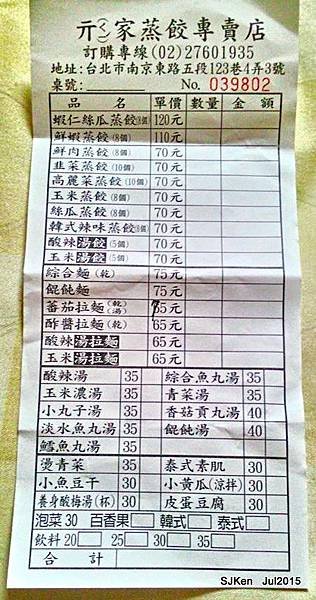 亓家蒸餃專賣店
訂購專線(02)27601935
地址:台北市南京東路五段123巷4弄3號
桌號: No. 039802
品名 單價 數量 金額
蝦仁絲瓜蒸餃(8個) 120元
鮮蝦蒸餃(8個) 110元
鮮肉蒸餃(8個) 70元
韭菜蒸餃(10個) 70元
高麗菜蒸餃(10個) 70元
玉米蒸餃(8個) 70元
絲瓜蒸餃(8個) 70元
韓式辣味蒸餃(8個) 70元
酸辣湯餃(5個) 70元
玉米湯餃(5個) 70元
綜合麵(乾) 75元
餛飩麵 75元
蕃茄拉麵(乾湯) 85元
酢醬拉麵(乾) 65元
酸辣湯拉麵 65元
玉米湯拉麵 65元
酸辣湯 35 綜合魚丸湯 35
玉米濃湯 35 青菜湯 35
小丸子湯 35 香菇貢丸湯 40
淡水魚丸湯 35 餛飩湯 40
鱈魚丸湯 35
燙青菜 35 泰式素肌 30
小魚豆干 30 小黃瓜(涼拌) 30
養身酸梅湯(杯) 30 皮蛋豆腐 30
泡菜30 百香果 韓式 泰式
飲料20 25 30 35
合計
SJKen Jul2015